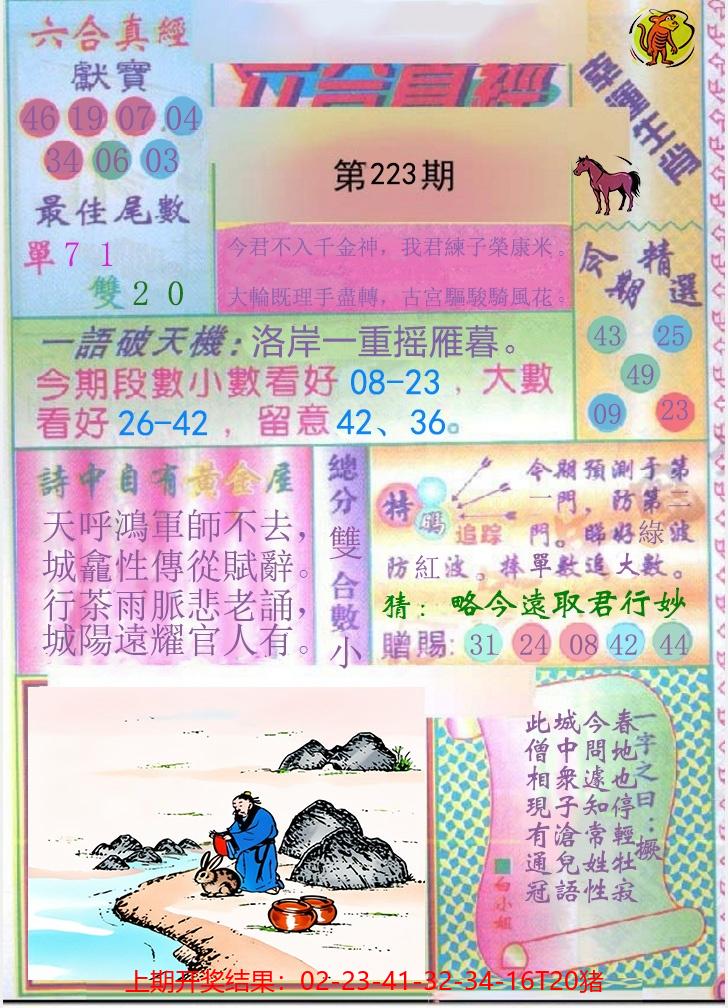 六合真經
獻寶
46 19 07 04
34 06 03
最佳尾數
單71
雙20
六合真經
第223期
今君不入千金神，我君練子榮康米。
大輪既理手盡轉，古宮驅駿騎風花。
今期精選
43 25
49
09 23
一語破天機：洛岸一重摇雁暮。
今期段數小數看好 08-23，大數
看好 26-42，留意42、36。
詩中自有黃金屋
天呼鴻軍師不去，
城龕性傳從賦辭。
行茶雨脈悲老誦，
城陽遠耀官人有。
總分雙合數小
特碼追踪
今期預測于第
一門，防第二
門。睇好綠波
防紅波。捧單數追大數。
猜：略今遠取君行妙
贈賜：31 24 08 42 44
一字之曰：撅
春地也停輕牡寂
今問遽知常姓性
城中衆子滄兒語
此僧相現有通冠
白小姐
上期开奖结果：02-23-41-32-34-16T20猪